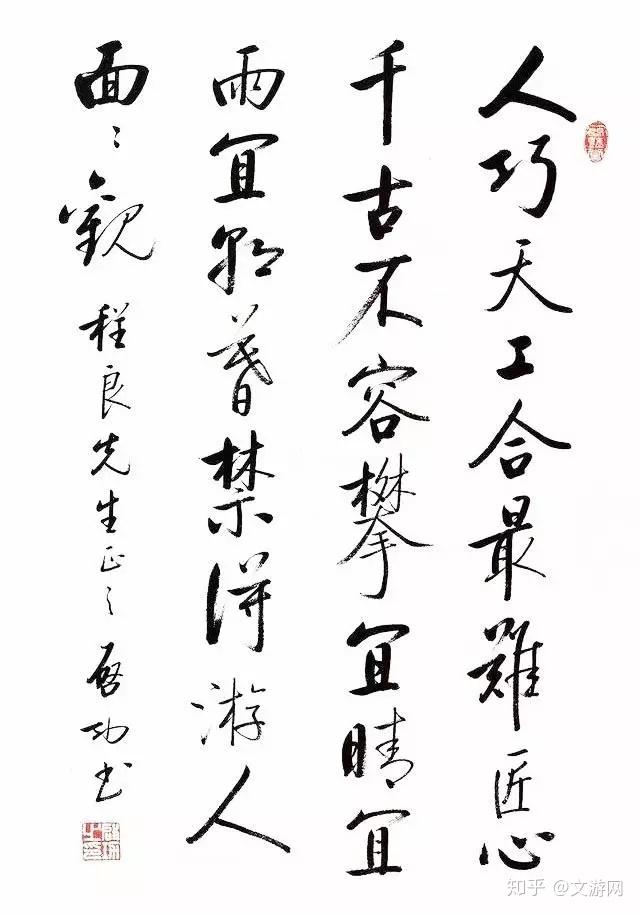 人巧天工合最難匠心
千古不容攀宜晴宜
雨宜朝暮禁得游人
面〻觀 程良先生正之 啓功书
知乎 @文游网